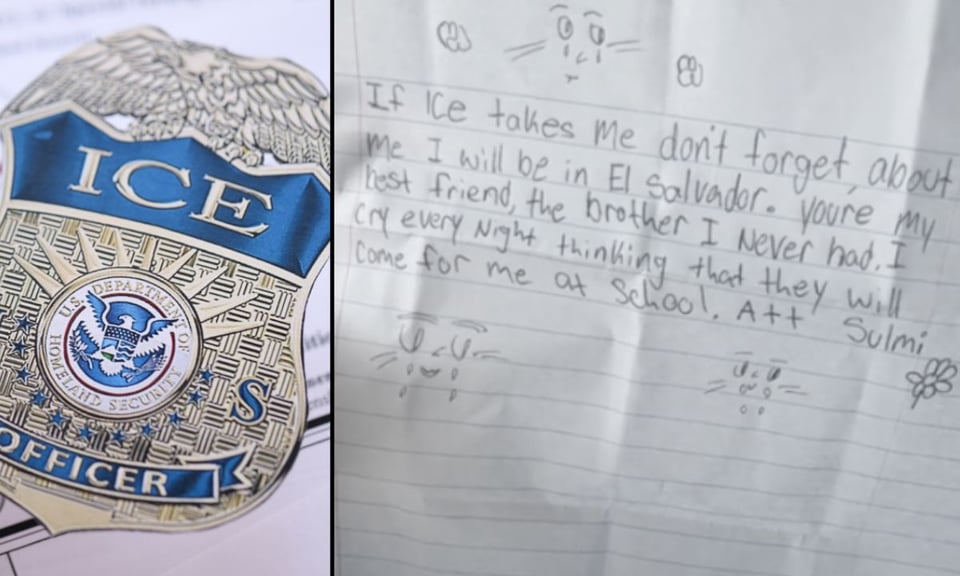 ICE
U.S. DEPARTMENT OF
HOMELAND SECURITY
S
OFFICER
If Ice takes me don't forget about
me I will be in El Salvador. you're my
best friend, the brother I Never had. I
cry every Night thinking that they will
come for me at School. A++ Sulmi